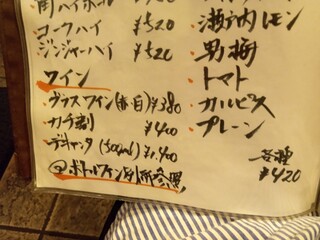 コークハイ ¥520
ジンジャーハイ ¥520
ワイン
・グラスワイン(赤・白) ¥380
・カラフ割 ¥400
・デキャンタ(500ml) ¥1,400
ボトルワイン別所参照
・瀬戸内レモン
・男梅
・トマト
・カルピス
・プレーン
各種
¥420